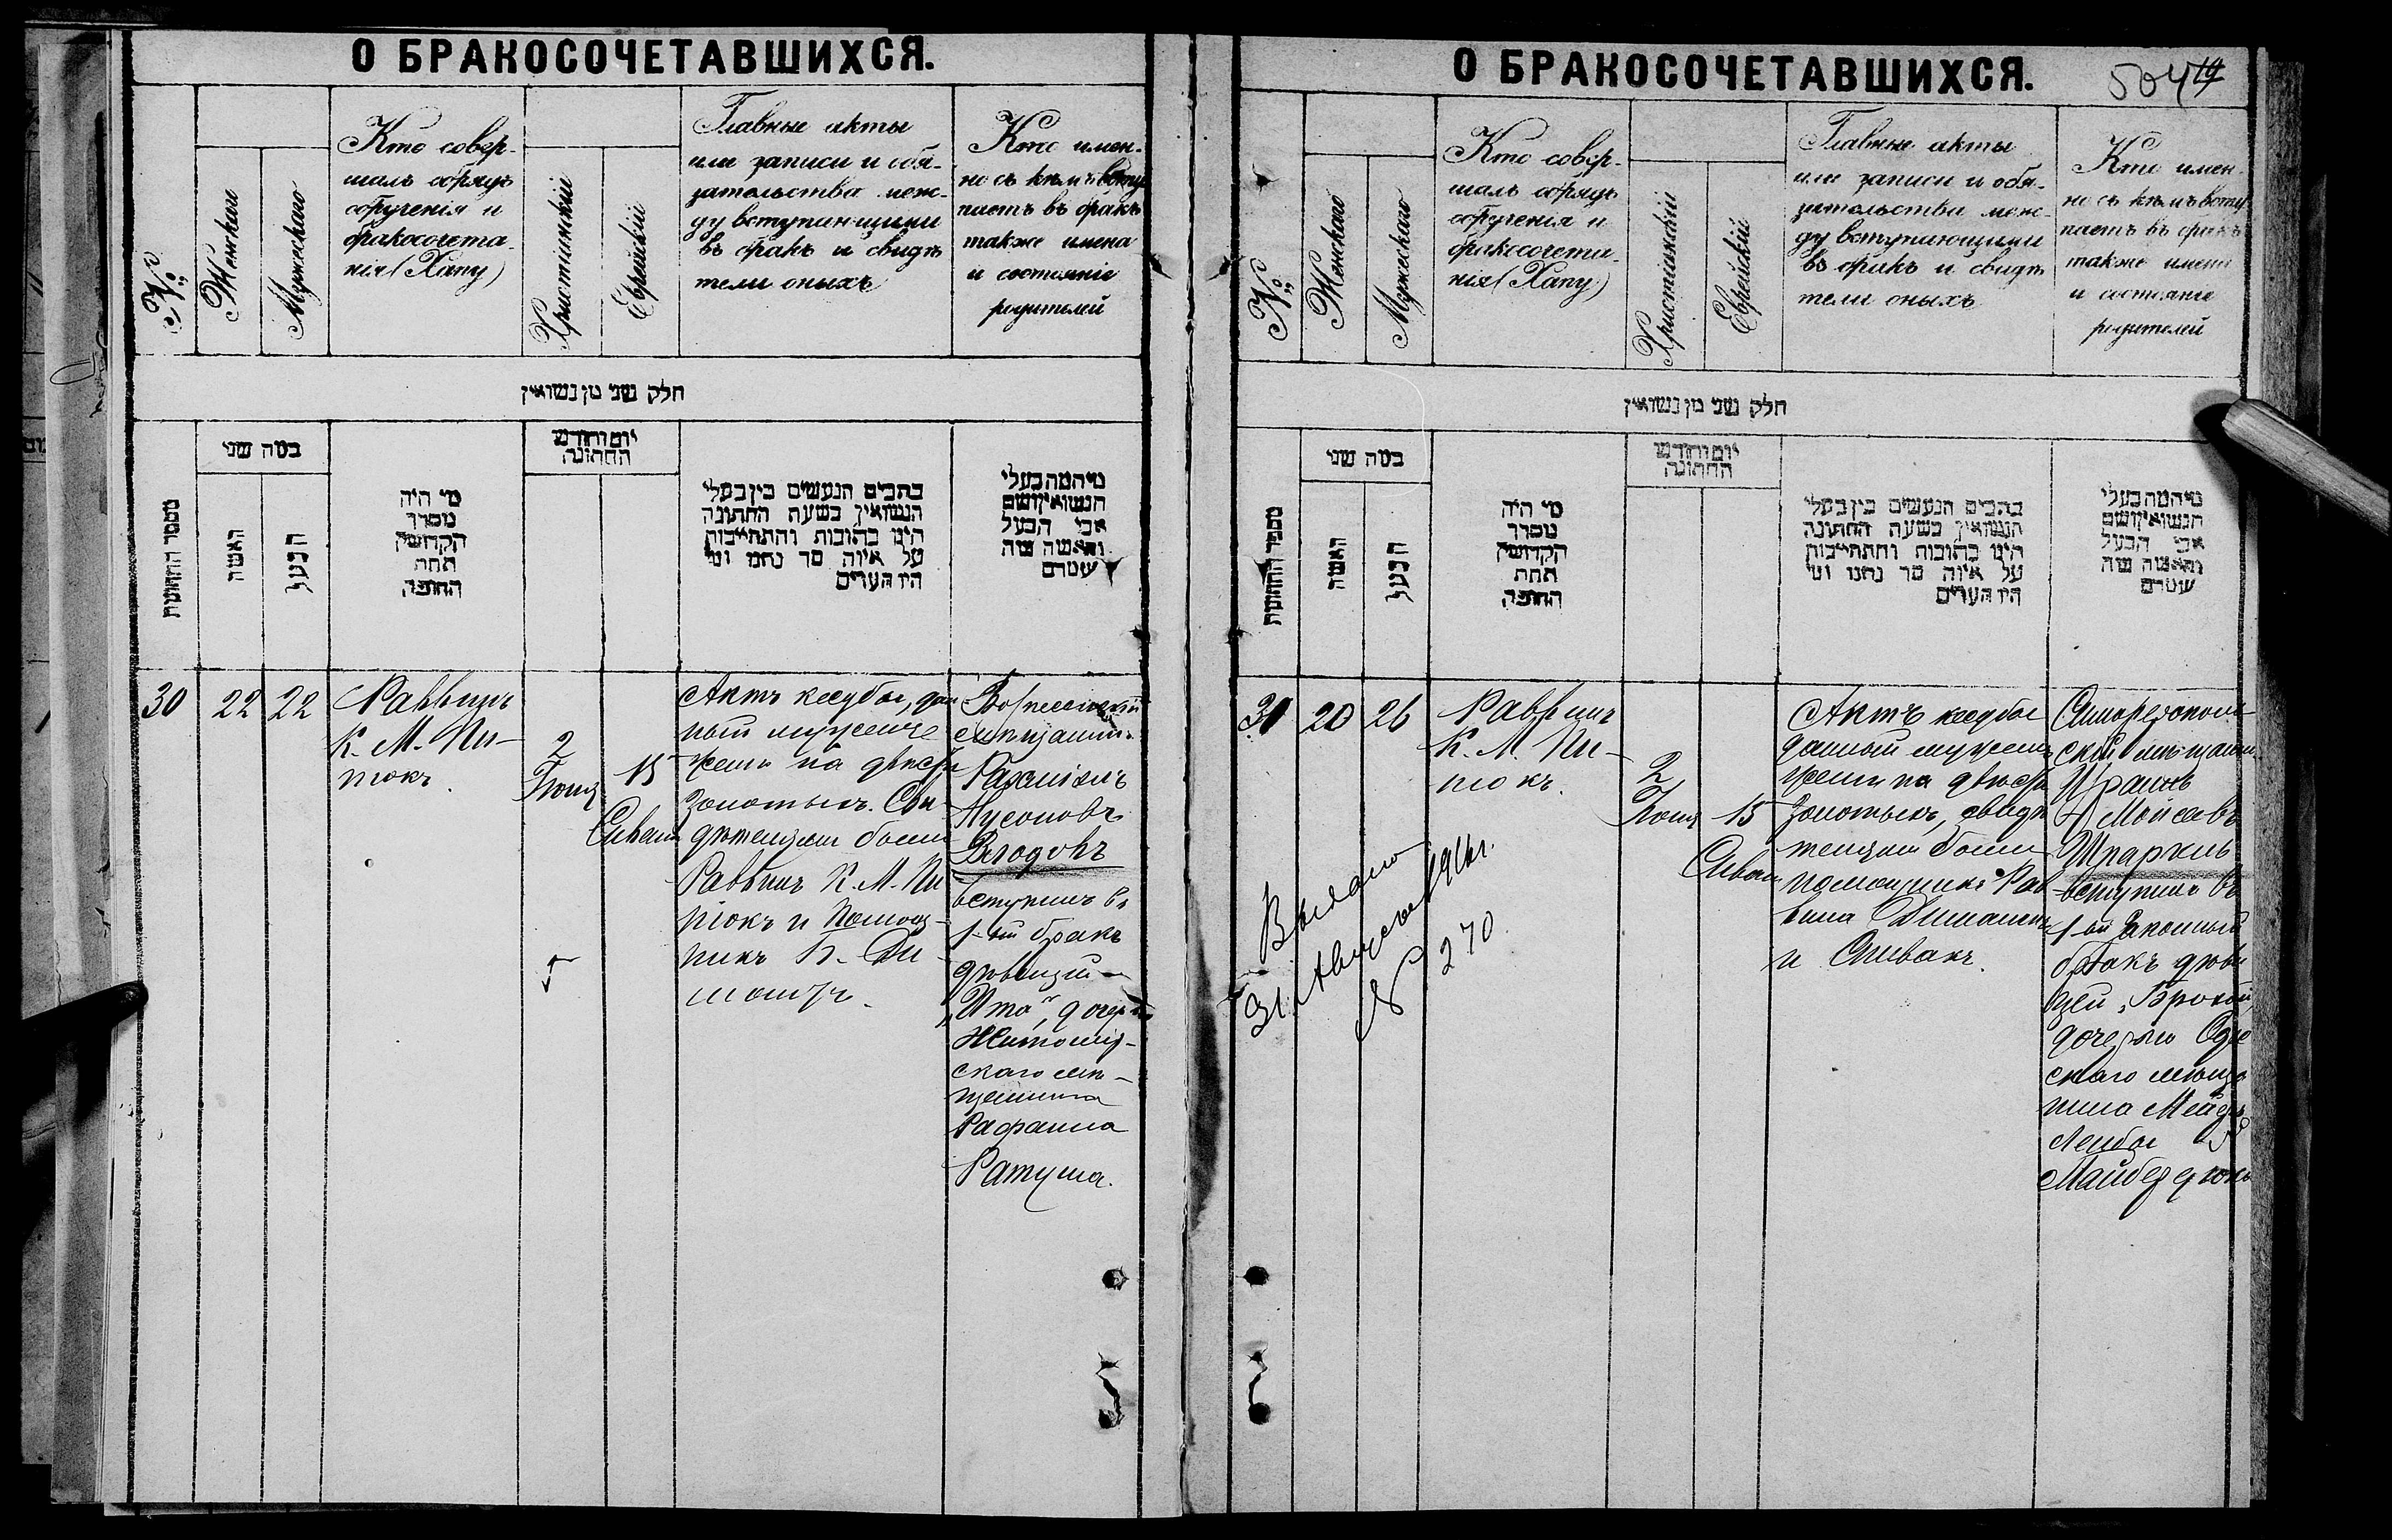 О БРАКОСОЧЕТАВШИХСЯ.
№
Женскаго
Мужескаго
Кто совер-
шалъ обрядъ
обрученія и
бракосочета-
нія (Хапу)
Христіанскій
Еврейскій
Главные акты
или записи и обя-
зательства меж-
ду вступающими
въ бракъ и свидѣ
тели оныхъ
Кто имен-
но съ кѣмъ всту
паетъ въ бракъ
также имена
и состояніе
родителей
חלק שני מן נשואין
מספר החתונות
במה שני
האשה
הבעל
מי היה
מסדר
הקדושין
תחת
החופה
יום וחודש
החתונה
כתבים הנעשים בין בעלי
הנשואין בשעת החתונה
היינו כתובות והתחייבות
על איזה סך נתנו ומי
היו העדים
מי המה בעלי
הנשואין ושם
אבי הבעל
והאשה ומה
עוטרם
30
22
22
Раввинъ
К. М. Пи-
токъ.
2
Іюня
15
Сивана
Актъ ксубы, дан
ный мужемъ
женѣ на двѣсти
золотыхъ. Сви-
дѣтелями были
Раввинъ К. М. Пи
нокъ и Помощ-
никъ Б. Ди-
Вознесенскій
мѣщанинъ
Рахміель
Нусоновъ
Вгодовъ
вступилъ въ
1-ый бракъ
съ дѣвицей
"Ита", дочерью
Житомир-
скаго мѣ-
щанина
Рафаила
Ратуша.
О БРАКОСОЧЕТАВШИХСЯ.
504
19
№
Женскаго
Мужескаго
Кто совер-
шалъ обрядъ
обрученія и
бракосочета-
нія (Хапу)
Христіанскій
Еврейскій
Главные акты
или записи и обя-
зательства меж-
ду вступающими
въ бракъ и свидѣ
тели оныхъ
Кто имен-
но съ кѣмъ всту
паетъ въ бракъ
также имена
и состояніе
родителей
חלק שני מן נשואין
מספר החתונות
במה שני
האשה
הבעל
מי היה
מסדר
הקדושין
תחת
החופה
יום וחודש
החתונה
כתבים הנעשים בין בעלי
הנשואין בשעת החתונה
היינו כתובות והתחייבות
על איזה סך נתנו ומי
היו העדים
מי המה בעלי
הנשואין ושם
אבי הבעל
והאשה ומה
עוטרם
31
20
26
Раввинъ
К. М. Пи-
нокъ.
2
Іюня
15
Сивана
Актъ ксубы
данный мужемъ
женѣ на двѣсти
золотыхъ, свидѣ
телями были
помощникъ Рав
вина
и Спивакъ.
мѣщанинъ
Мойсеевъ
Шпаркъ
вступилъ въ
1-ый законный
бракъ съ дѣви
цей "Брохой",
дочерью Одес
скаго мѣща
нина
Лейбы
Выдано
31 Августа 1916 г.
№ 270